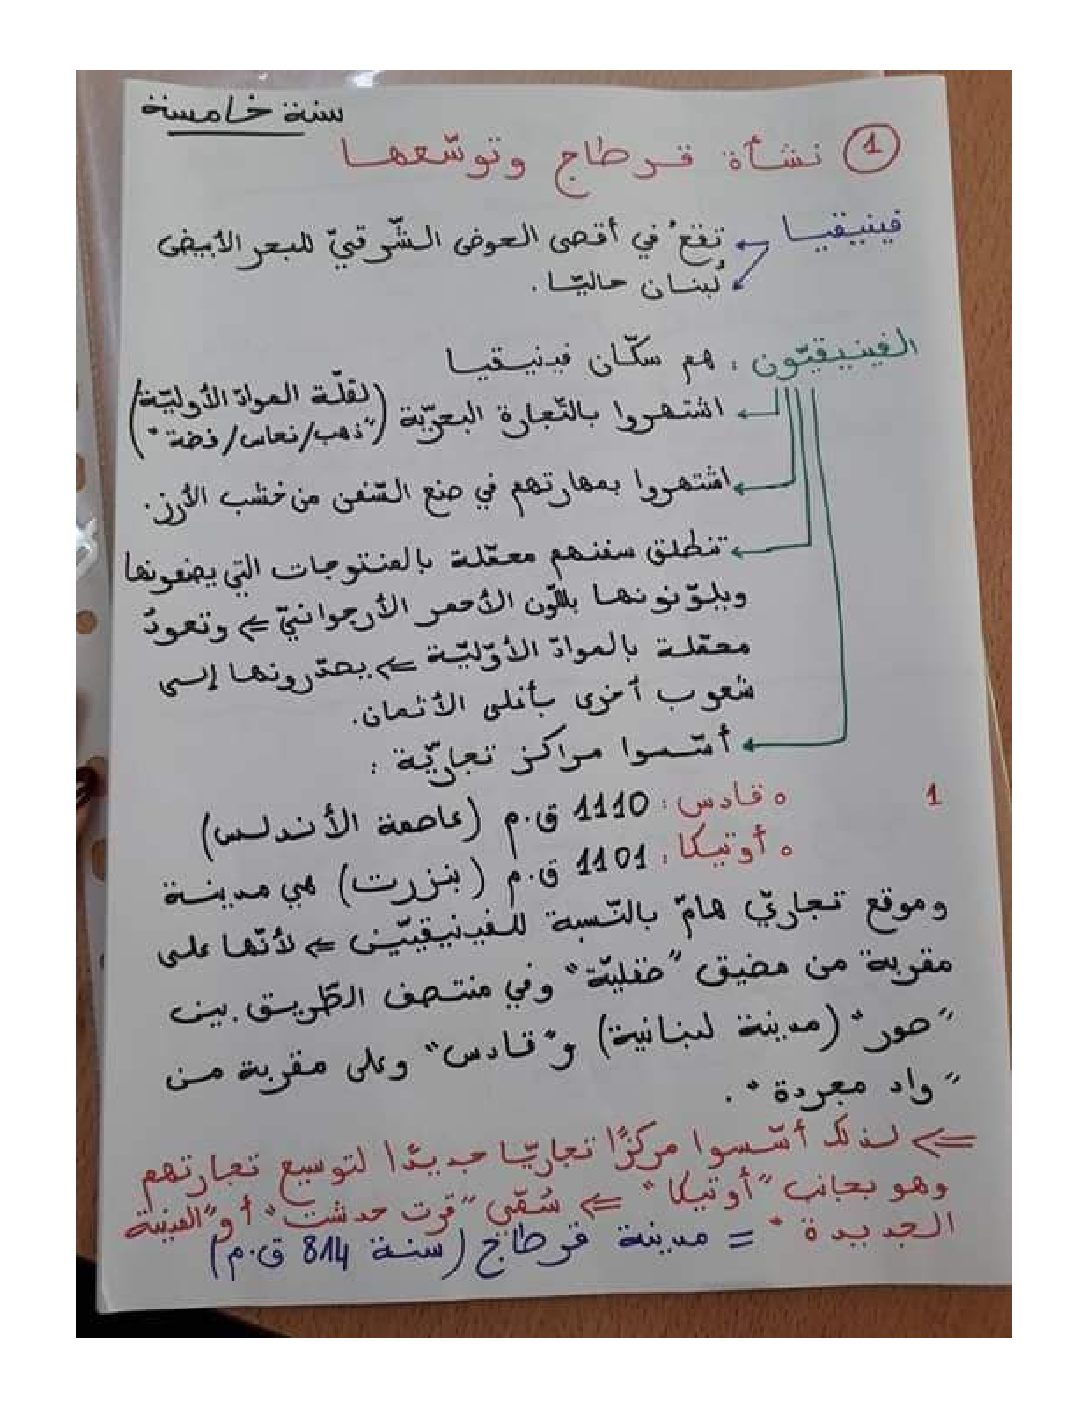 سنة خامسة
1 نشأة قرطاج وتوسّعها
فينيقيا
تقعُ في أقصى الحوض الشّرقيّ للبحر الأبيض
لُبنان حاليّا .
الفينيقيّون : هم سكّان فينيقيا
اشتهروا بالتّجارة البحريّة (لقلّة الموادّ الأوليّة
"ذهب/نحاس/فضة")
اشتهروا بمهارتهم في صنع السّفن من خشب الأرز.
تنطلق سفنهم محمّلة بالمنتوجات التي يصنعونها
ويلوّنونها باللّون الأحمر الأرجوانيّ ⇐ وتعودُ
محمّلة بالموادّ الأوّليّة ⇐ يصدّرونها إلى
شعوب أخرى بأغلى الأثمان.
أسّسوا مراكز تجاريّة :
1
o قادس : 1110 ق.م (عاصمة الأندلس)
o أوتيكا : 1101 ق.م (بنزرت) هي مدينة
وموقع تجاريّ هامّ بالنّسبة للفينيقيّين ⇐ لأنّها على
مقربة من مضيق "صقليّة" وفي منتصف الطّريق بين
"صور" (مدينة لبنانية) و"قادس" وعلى مقربة من
"واد مجردة" .
⇐ لذلك أسّسوا مركزًا تجاريّا جديدًا لتوسيع تجارتهم
وهو بجانب "أوتيكا" ⇐ سُمّي "قرت حدشت" أو "المدينة
الجديدة" = مدينة قرطاج (سنة 814 ق.م)